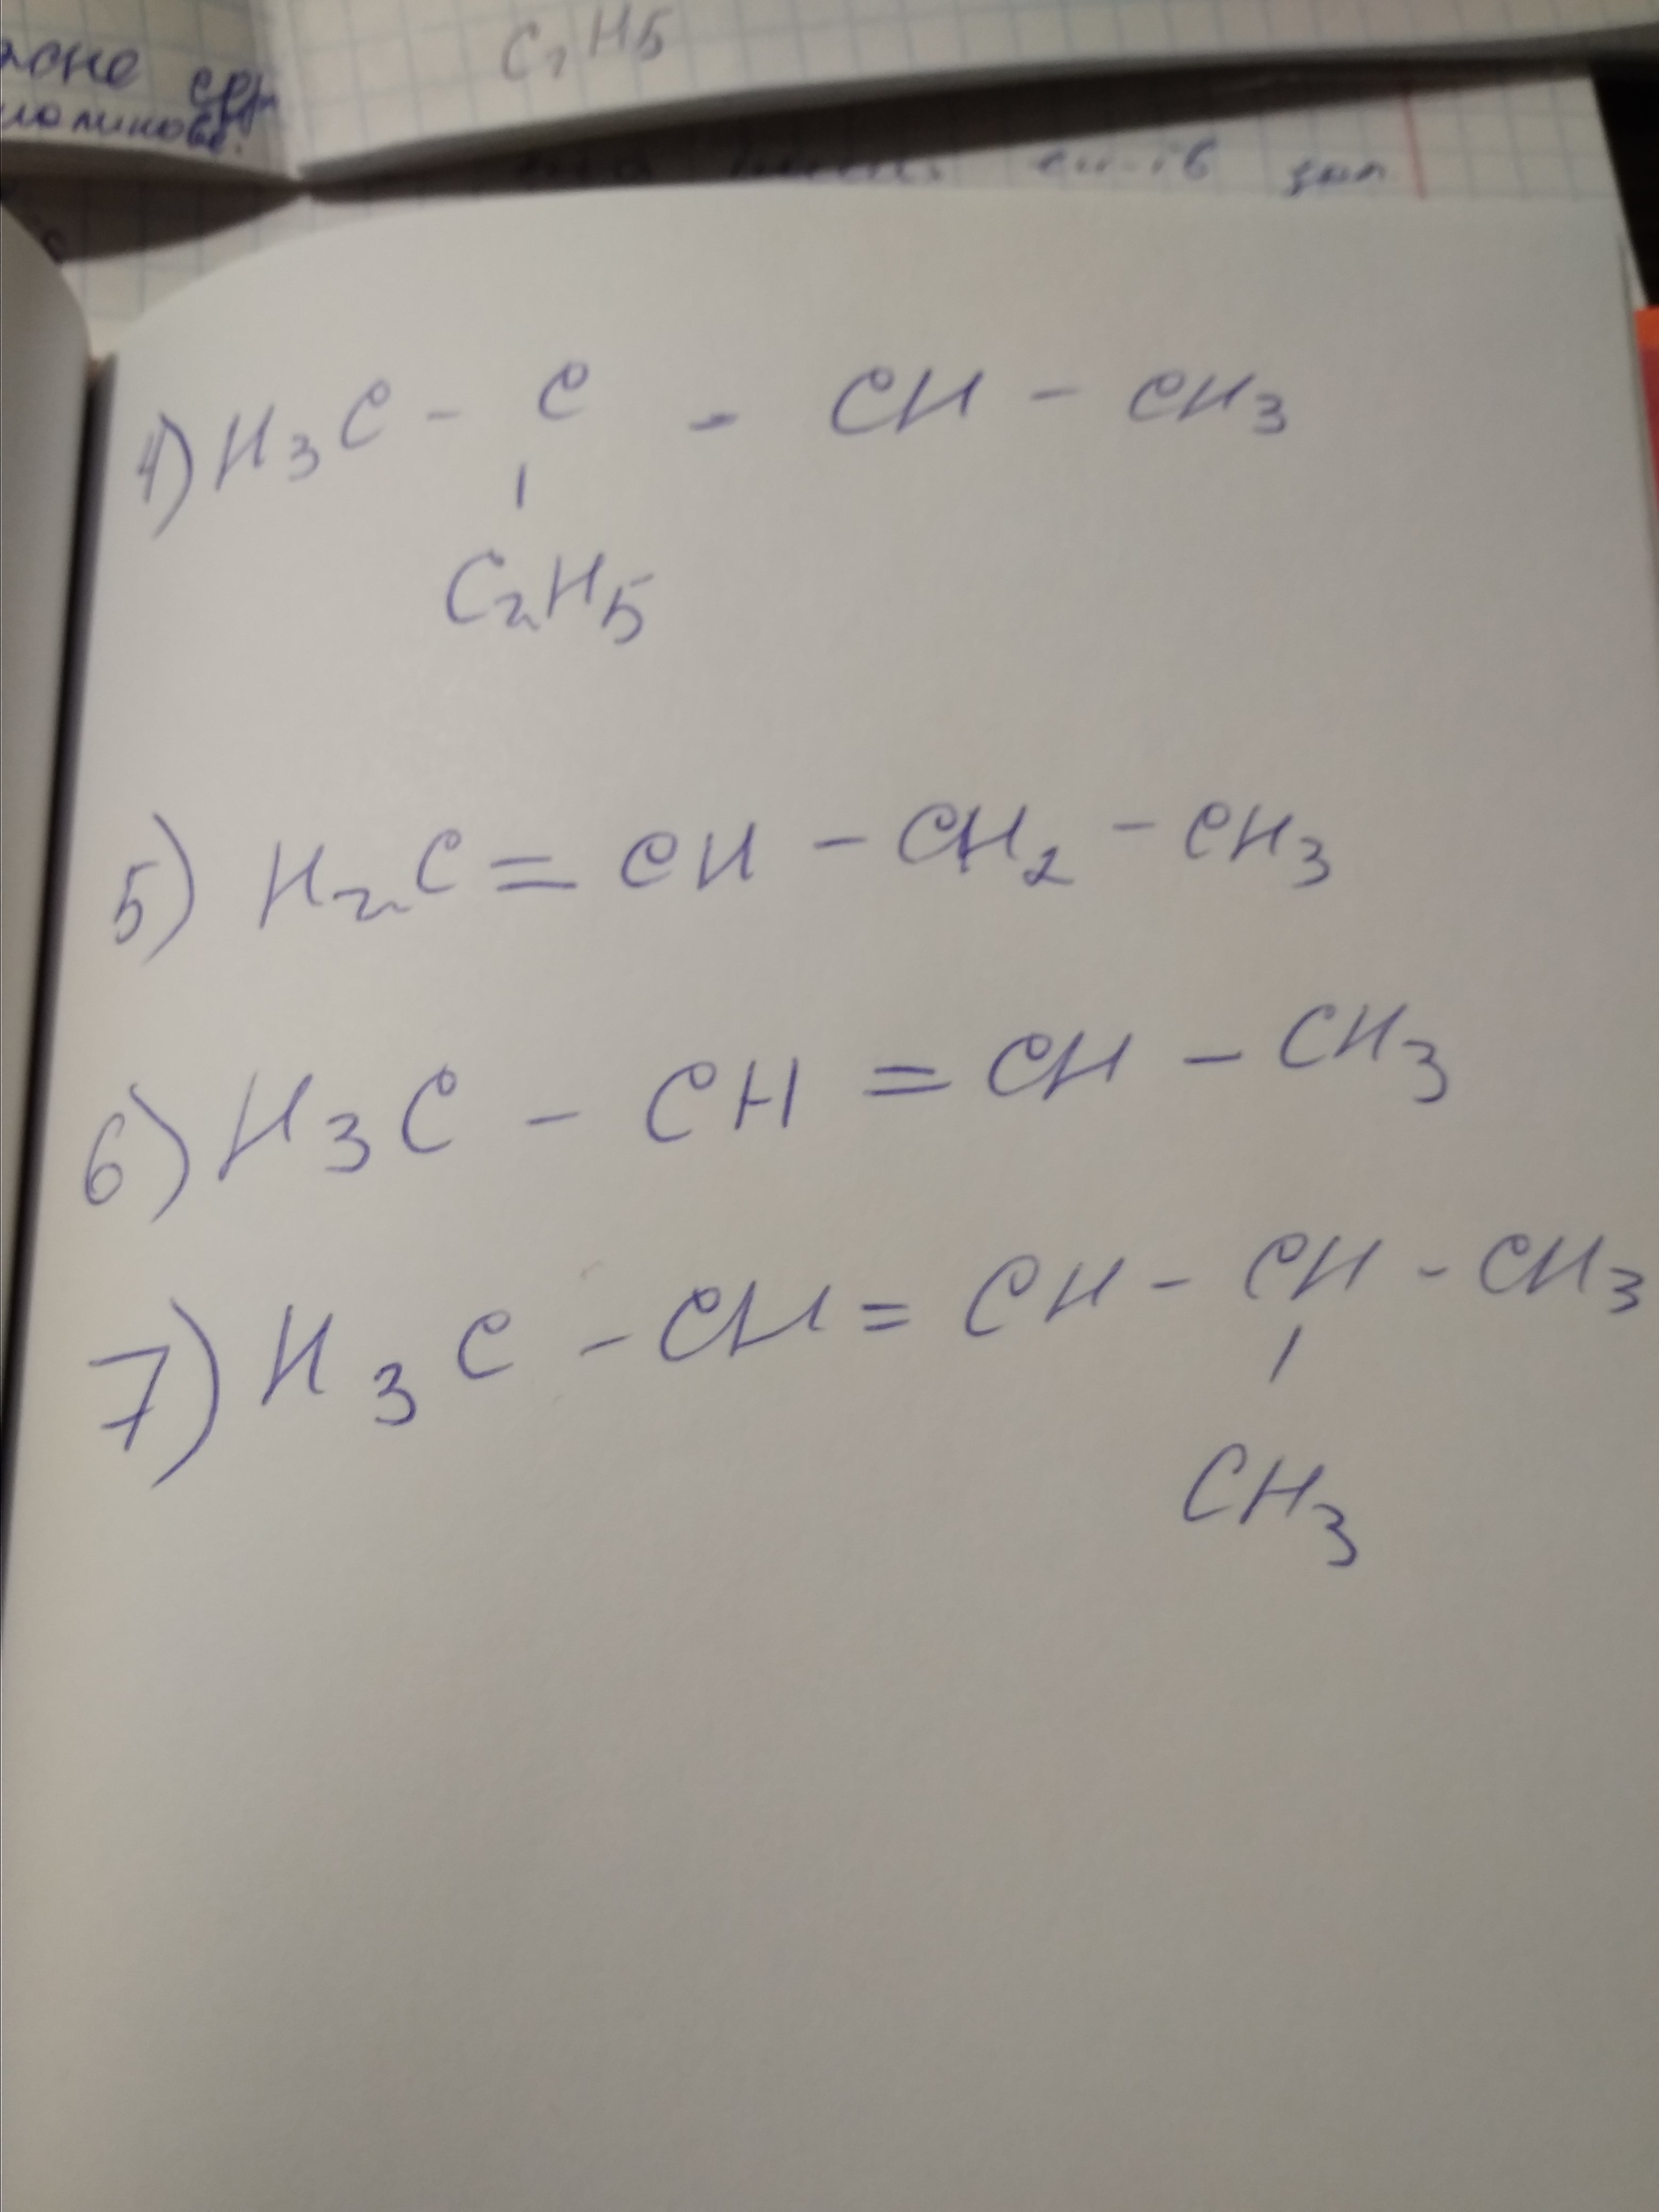 C₂H₅
4) H₃C - C - CH - CH₃
C₂H₅
5) H₂C = CH - CH₂ - CH₃
6) H₃C - CH = CH - CH₃
7) H₃C - CH = CH - CH - CH₃
CH₃